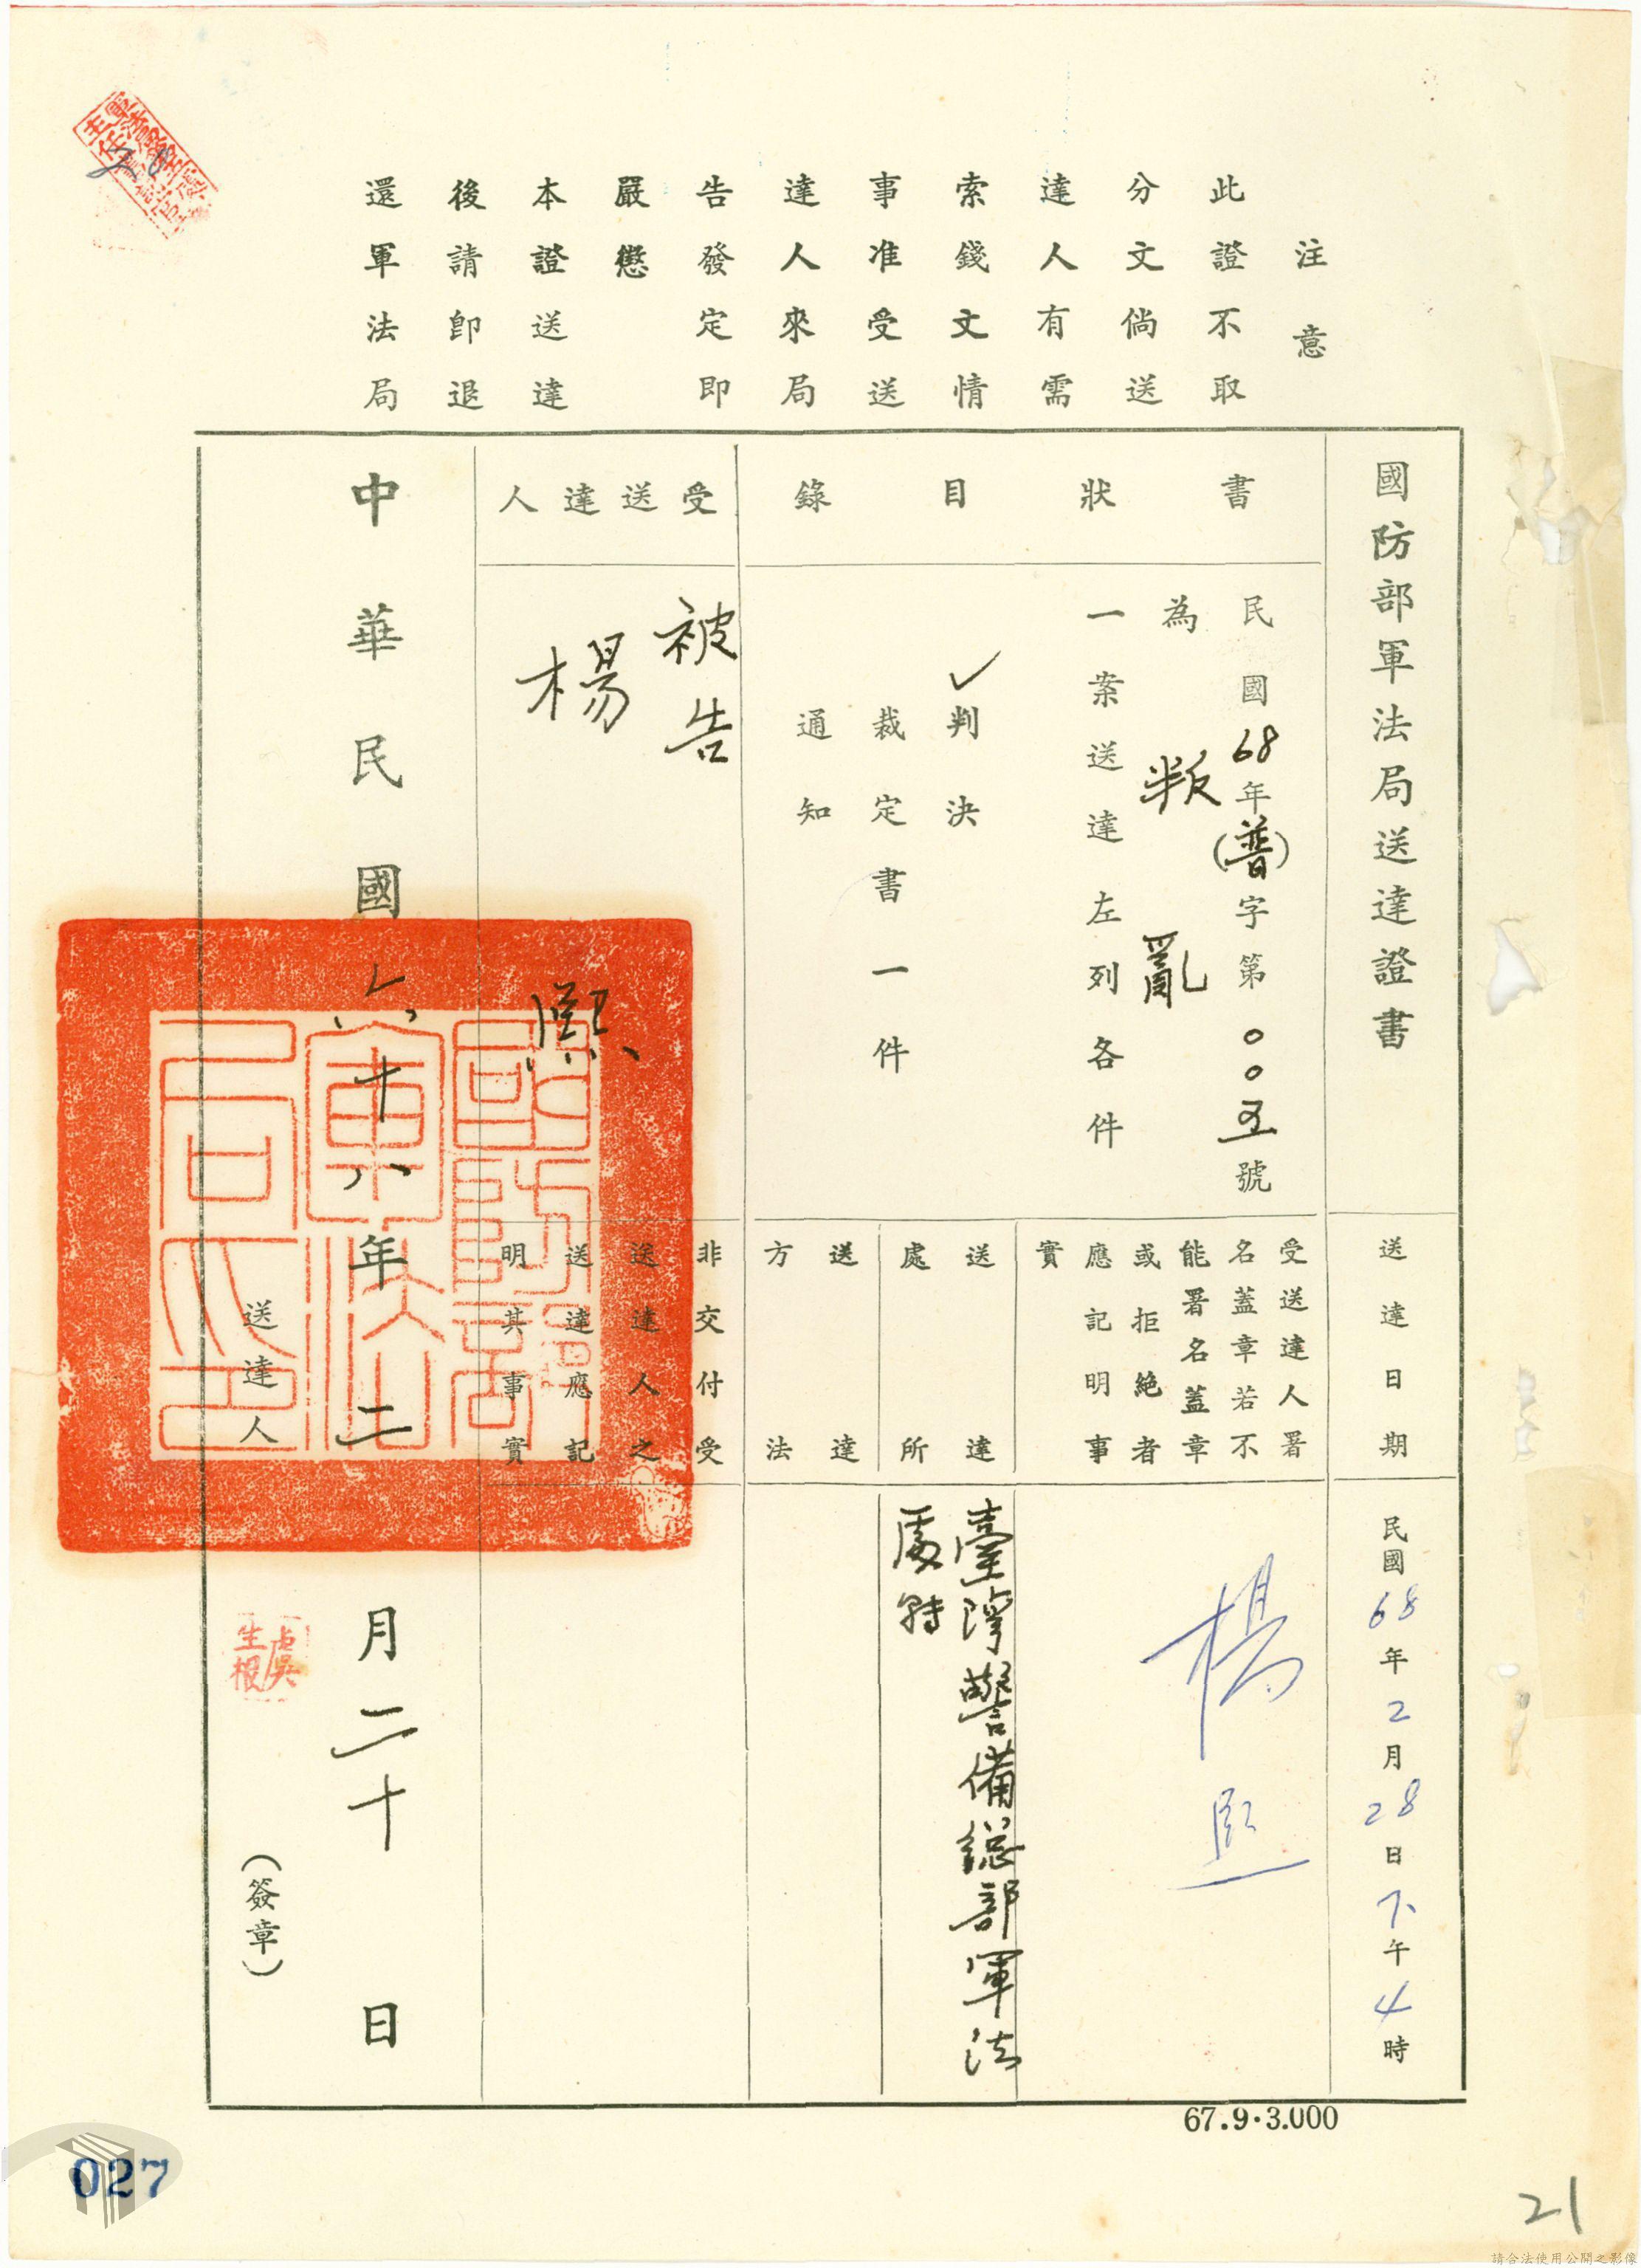 注意
此證不取
分文倘送
達人有需
索錢文情
事准受送
達人來局
告發定即
嚴懲
本證送達
後請即退
還軍法局
國防部軍法局送達證書
送達日期
民國68年2月28日下午4時
書狀目錄
民國68年(普)字第〇〇五號
為叛亂
一案送達左列各件
✓判決
裁定書一件
通知
受送達人署
名蓋章若不
能署名蓋章
或拒絕者
應記明事
實
楊熙
送達
處所
臺灣警備總部軍法
處
送達
方法
受送達人
被告
楊熙
非交付受
送達人之
送達應記
明其事實
中華民國六十八年二月二十日
送達人
虞
生根
(簽章)
國防部
軍法
局印
67.9.3.000
20
027
21
請合法使用公開之影像